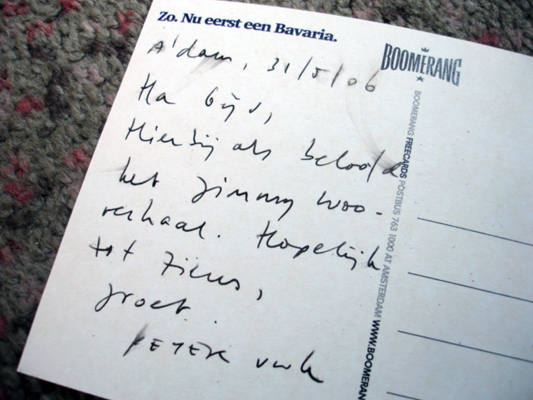 Zo. Nu eerst een Bavaria.
BOOMERANG
A'dam, 31/5/06
Ha Gijs,
Hierbij als beloofd
het Jimmy Woo-
verhaal. Hopelijk
tot ziens,
groet.
PETER
BOOMERANG FREECARDS POSTBUS 763 1000 AT AMSTERDAM WWW.BOOMERAN